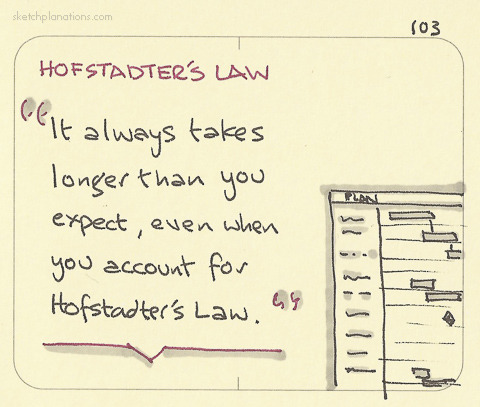 sketchplanations.com
103
HOFSTADTER'S LAW
“It always takes
longer than you
expect, even when
you account for
Hofstadter's Law.”
PLAN